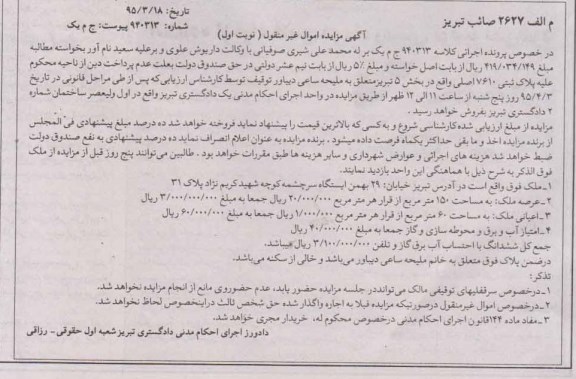 م الف ۲۶۲۷ صائب تبریز
تاریخ: ۹۵/۳/۱۸
شماره: ۹۴۰۳۱۳ پیوست: ج م یک
آگهی مزایده اموال غیر منقول ( نوبت اول )
در خصوص پرونده اجرائی کلاسه ۹۴۰۳۱۳ ج م یک بر له محمد علی شیری صوفیانی با وکالت داریوش علوی و برعلیه سعید نام آور بخواسته مطالبه
مبلغ ۴۱۹/۰۳۴/۱۴۹ ریال از بابت اصل خواسته و مبلغ ۵٪ ریال از بابت نیم عشر دولتی در حق صندوق دولت بعلت عدم پرداخت دین از ناحیه محکوم
علیه پلاک ثبتی ۷۶۱۰ اصلی واقع در بخش ۵ تبریز متعلق به ملیحه ساعی دیباور توقیف توسط کارشناس ارزیابی که پس از طی مراحل قانونی در تاریخ
۹۵/۴/۳ روز پنج شنبه از ساعت ۱۱ الی ۱۲ ظهر از طریق مزایده در واحد اجرای احکام مدنی یک دادگستری تبریز واقع در اول ولیعصر ساختمان شماره
۲ دادگستری تبریز بفروش خواهد رسید .
مزایده از مبلغ ارزیابی شده کارشناسی شروع و به کسی که بالاترین قیمت را پیشنهاد نماید فروخته خواهد شد ده درصد مبلغ پیشنهادی فی المجلس
از برنده مزایده اخذ و ما بقی حداکثر یکماه فرصت داده میشود . برنده مزایده به عنوان اعلام انصراف نماید ده درصد پیشنهادی به نفع صندوق دولت
ضبط خواهد شد هزینه های اجرائی و عوارض شهرداری و سایر هزینه ها طبق مقررات خواهد بود . طالبین می‌توانند پنج روز قبل از مزایده از ملک
فوق الذکر به شرح ذیل با هماهنگی این واحد بازدید نمایند.
۱-ملک فوق واقع است در آدرس تبریز خیابان: ۲۹ بهمن ایستگاه سرچشمه کوچه شهید کریم نژاد پلاک ۳۱
۲-عرصه ملک: به مساحت ۱۵۰ متر مربع از قرار هر متر مربع ۲۰/۰۰۰/۰۰۰ ریال جمعا به مبلغ ۳/۰۰۰/۰۰۰/۰۰۰ ریال
۳-اعیانی ملک: به مساحت ۶۰ متر مربع از قرار هر متر مربع ۱/۰۰۰/۰۰۰ ریال جمعا به مبلغ ۶۰/۰۰۰/۰۰۰ ریال
۴-امتیاز آب و برق و محوطه سازی و گاز جمعا به مبلغ ۴۰/۰۰۰/۰۰۰ ریال
جمع کل ششدانگ با احتساب آب برق گاز و تلفن ۳/۱۰۰/۰۰۰/۰۰۰ ریال میباشد.
درضمن پلاک فوق متعلق به خانم ملیحه ساعی دیباور می‌باشد و خالی از سکنه می‌باشد.
تذکر:
۱-درخصوص سرقفلیهای توقیفی مالک می‌تواند در جلسه مزایده حضور یابد، عدم حضور وی مانع از انجام مزایده نخواهد شد.
۲-درخصوص اموال غیر منقول در صورتیکه مزایده قبلا به اجاره واگذار شده حق شخص ثالث در اینخصوص لحاظ نخواهد شد.
۳-مفاد ماده ۱۴۴ قانون اجرای احکام مدنی درخصوص محکوم له، خریدار مجری خواهد شد.
دادورز اجرای احکام مدنی دادگستری تبریز شعبه اول حقوقی - رزاقی